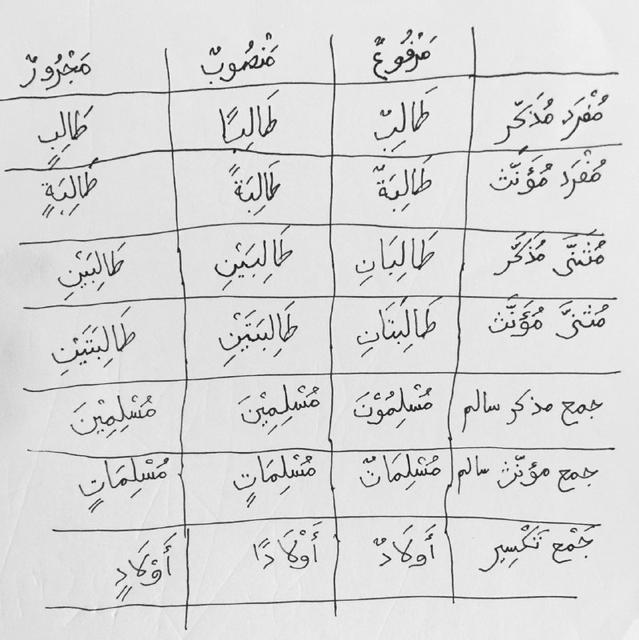 مَرْفُوعٌ مَنْصُوبٌ مَجْرُورٌ
مُفْرَد مُذَكَّر طَالِبٌ طَالِبًا طَالِبٍ
مُفْرَد مُؤَنَّث طَالِبَةٌ طَالِبَةً طَالِبَةٍ
مُثَنَّى مُذَكَّر طَالِبَانِ طَالِبَيْنِ طَالِبَيْنِ
مُثَنَّى مُؤَنَّث طَالِبَتَانِ طَالِبَتَيْنِ طَالِبَتَيْنِ
جمع مذكر سالم مُسْلِمُوْنَ مُسْلِمِيْنَ مُسْلِمِيْنَ
جمع مؤنّث سالم مُسْلِمَاتٌ مُسْلِمَاتٍ مُسْلِمَاتٍ
جَمْع تَكْسِير أَوْلَادٌ أَوْلَادًا أَوْلَادٍ